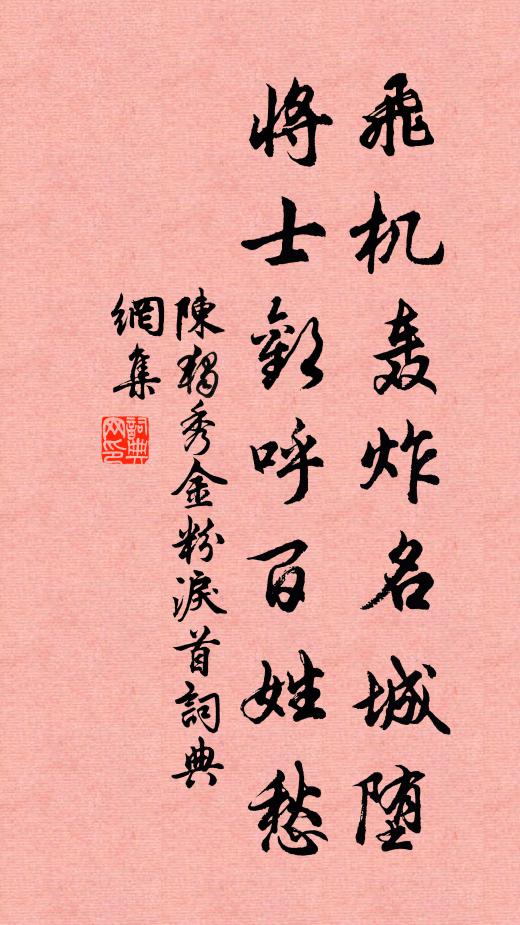 飛机轰炸名城堕
將士歡呼百姓愁
陳獨秀金粉淚首詞典
網集
詞典
网印